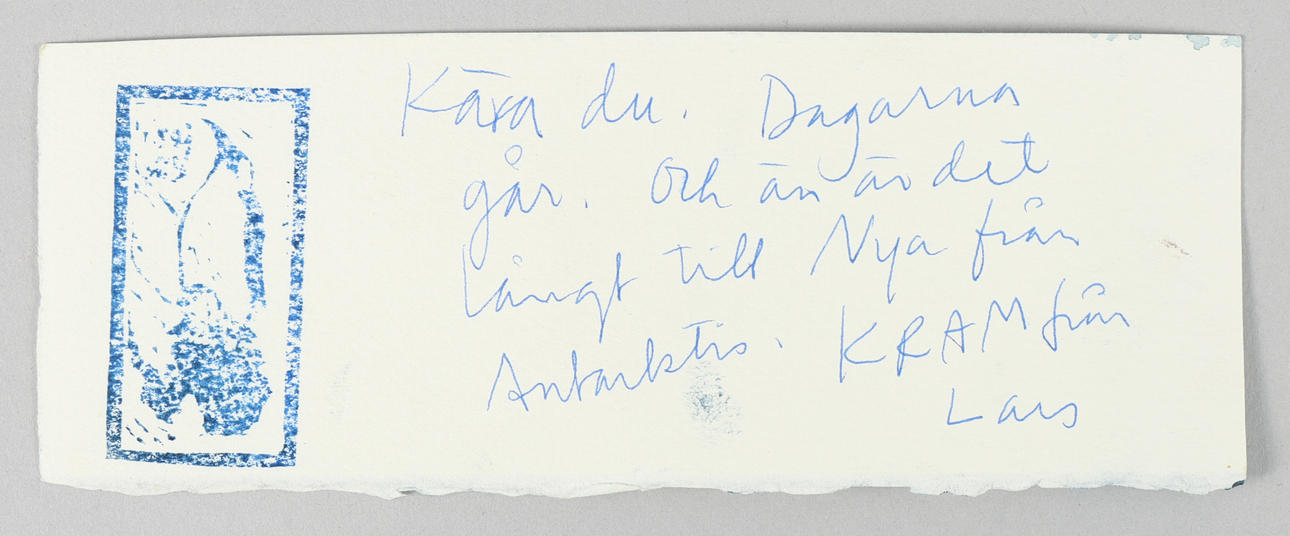 Kära du. Dagarna
går. Och än är det
långt till Nya från
Antarktis. KRAM från
Lars